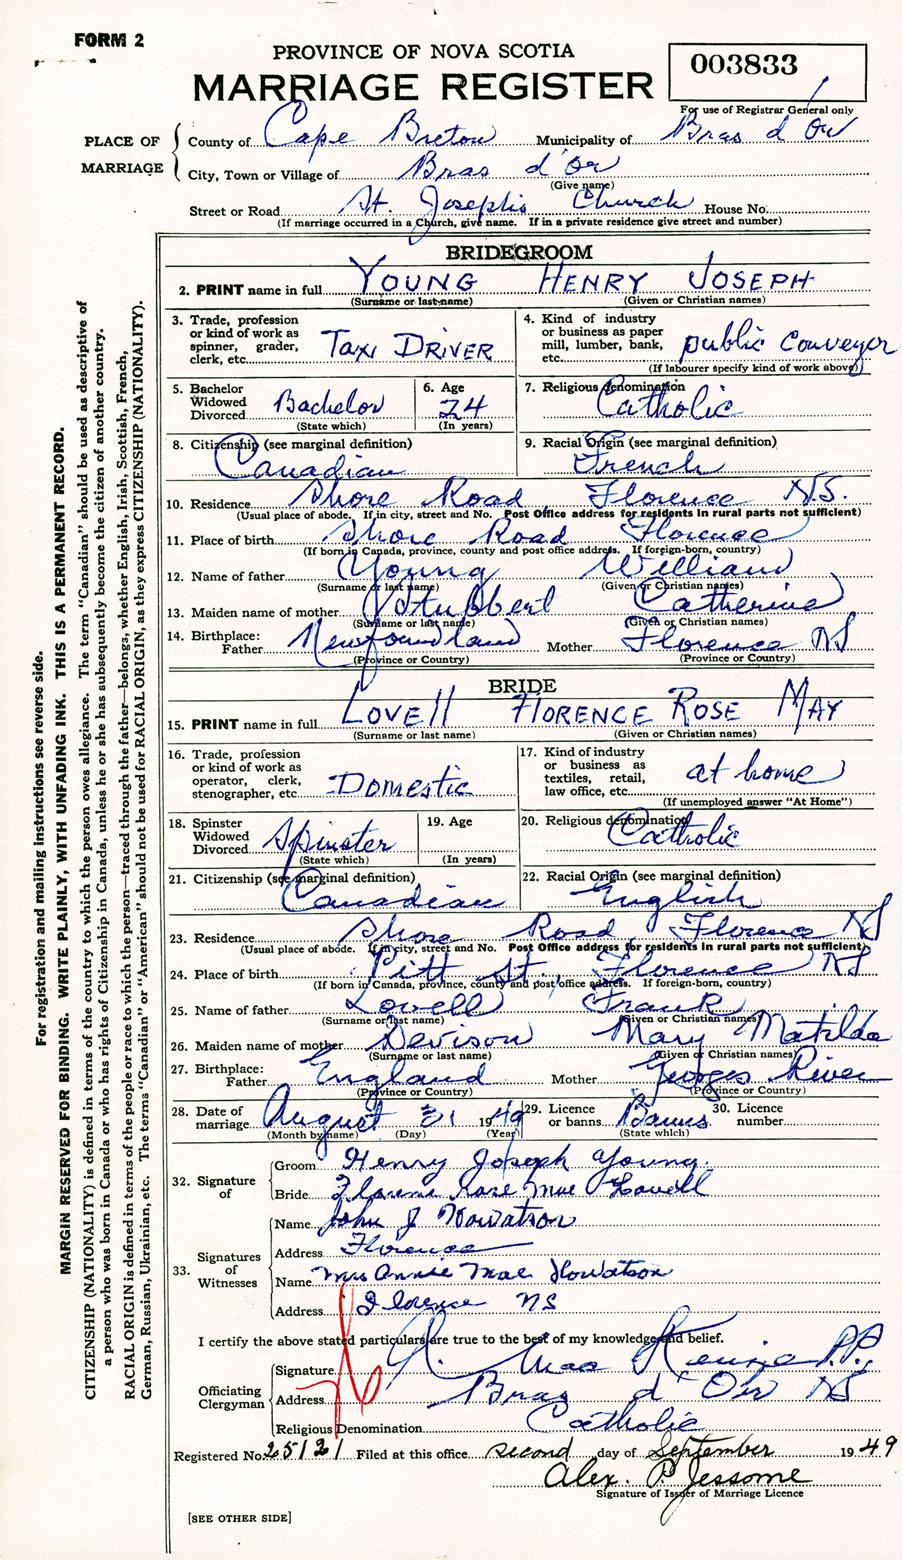 FORM 2
PROVINCE OF NOVA SCOTIA
MARRIAGE REGISTER
003833
For use of Registrar General only
PLACE OF MARRIAGE
County of Cape Breton Municipality of Bras d'Or
City, Town or Village of Bras d'Or
(Give name)
Street or Road St. Joseph's Church House No.
(If marriage occurred in a Church, give name. If in a private residence give street and number)
BRIDEGROOM
2. PRINT name in full YOUNG HENRY JOSEPH
(Surname or last name) (Given or Christian names)
3. Trade, profession or kind of work as spinner, grader, clerk, etc. TAXI DRIVER
4. Kind of industry or business as paper mill, lumber, bank, etc. public Conveyer
(If labourer specify kind of work above)
5. Bachelor Widowed Divorced Bachelor
(State which)
6. Age 24
(In years)
7. Religious denomination Catholic
8. Citizenship (see marginal definition) Canadian
9. Racial Origin (see marginal definition) French
10. Residence Shore Road Florence N.S.
(Usual place of abode. If in city, street and No. Post Office address for residents in rural parts not sufficient)
11. Place of birth Shore Road Florence
(If born in Canada, province, county and post office address. If foreign-born, country)
12. Name of father Young William
(Surname or last name) (Given or Christian names)
13. Maiden name of mother Stubbert Catherine
(Surname or last name) (Given or Christian names)
14. Birthplace: Father Newfoundland Mother Florence NS
(Province or Country) (Province or Country)
BRIDE
15. PRINT name in full LOVELL FLORENCE ROSE MAY
(Surname or last name) (Given or Christian names)
16. Trade, profession or kind of work as operator, clerk, stenographer, etc. Domestic
17. Kind of industry or business as textiles, retail, law office, etc. at home
(If unemployed answer "At Home")
18. Spinster Widowed Divorced Spinster
(State which)
19. Age
(In years)
20. Religious denomination Catholic
21. Citizenship (see marginal definition) Canadian
22. Racial Origin (see marginal definition) English
23. Residence Shore Road, Florence NS
(Usual place of abode. If in city, street and No. Post Office address for residents in rural parts not sufficient)
24. Place of birth Pitt St., Florence NS
(If born in Canada, province, county and post office address. If foreign-born, country)
25. Name of father Lovell Frank
(Surname or last name) (Given or Christian names)
26. Maiden name of mother Devison Mary Matilda
(Surname or last name) (Given or Christian names)
27. Birthplace: Father England Mother Georges River
(Province or Country) (Province or Country)
28. Date of marriage August 31 1949
(Month by name) (Day) (Year)
29. Licence or banns Banns
(State which)
30. Licence number
32. Signature of
Groom Henry Joseph Young.
Bride Florence Rose Mae Lovell
33. Signatures of Witnesses
Name John J Howatson
Address Florence
Name Mrs Annie Mae Howatson
Address Florence NS
I certify the above stated particulars are true to the best of my knowledge and belief.
Officiating Clergyman
Signature Chas P.P.
Address Bras d'Or NS
Religious Denomination Catholic
Registered No. 25121 Filed at this office second day of September 1949
Alex. P. Jessome
Signature of Issuer of Marriage Licence
[SEE OTHER SIDE]
For registration and mailing instructions see reverse side.
MARGIN RESERVED FOR BINDING. WRITE PLAINLY, WITH UNFADING INK. THIS IS A PERMANENT RECORD.
CITIZENSHIP (NATIONALITY) is defined in terms of the country to which the person owes allegiance. The term "Canadian" should be used as descriptive of
a person who was born in Canada or who has rights of Citizenship in Canada, unless he or she has subsequently become the citizen of another country.
RACIAL ORIGIN is defined in terms of the people or race to which the person—traced through the father—belongs, whether English, Irish, Scottish, French,
German, Russian, Ukrainian, etc. The terms "Canadian" or "American" should not be used for RACIAL ORIGIN, as they express CITIZENSHIP (NATIONALITY).